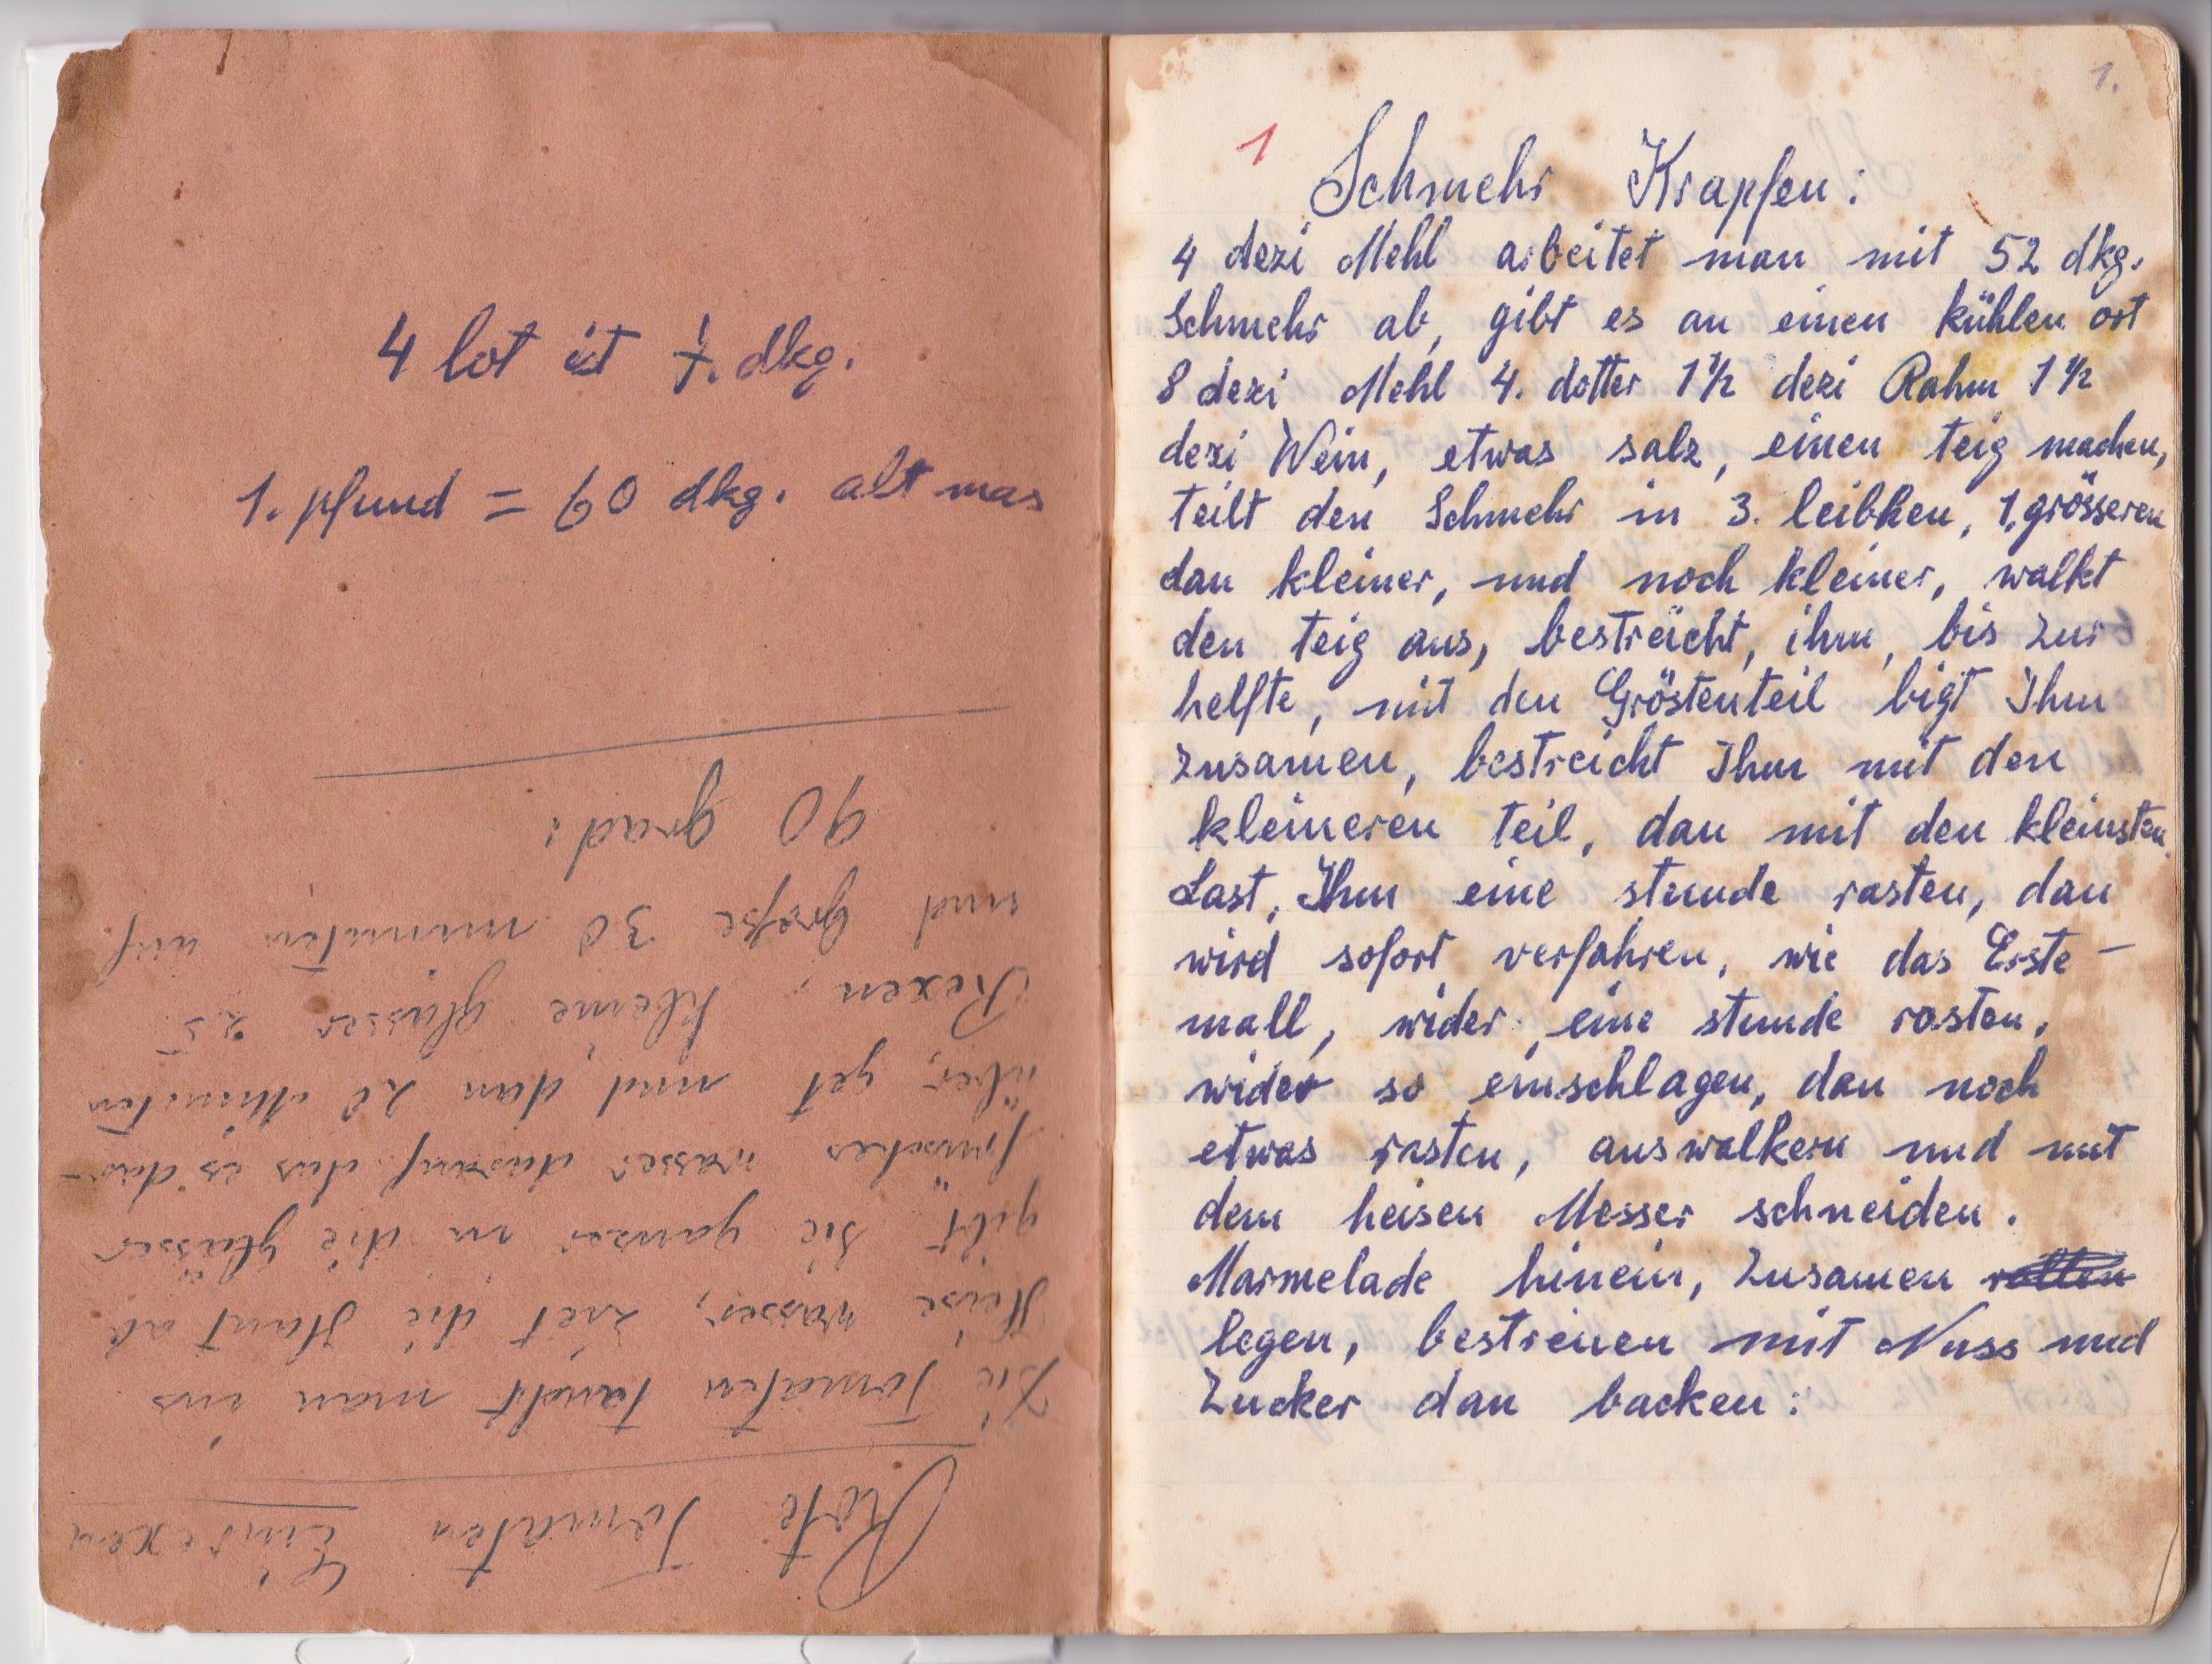 4 lot ist 7. dkg.
1. pfund = 60 dkg. alt mas
Rote Tomaten Einrexen
Die Tomaten taucht man ins
Heise wasser, ziet die Haut ab
gibt sie ganzer in die gläser
frisches wasser darauf das es dar-
über get und dan 20 Minuten
Rexen, kleine glässer 25
und große 30 minuten auf
90 grad:
1.
1
Schmehr Krapfen:
4 dezi Mehl arbeitet man mit 52 dkg.
Schmehr ab, gibt es an einen kühlen ort
8 dezi Mehl 4. dotter 1½ dezi Rahm 1½
dezi Wein, etwas salz, einen teig machen,
teilt den Schmehr in 3. leibken, 1, grösseren
dan kleiner, und noch kleiner, walkt
den teig aus, bestreicht, ihm, bis zur
helfte, mit den Gröstenteil bigt Ihm
zusamen, bestreicht Ihm mit den
kleineren teil, dan mit den kleinsten
Last, Ihm eine stunde rasten, dan
wird sofort verfahren, wie das Erste-
mall, wider, eine stunde rasten,
wider so einschlagen, dan noch
etwas rasten, auswalkern und mit
dem heisen Messer schneiden.
Marmelade hinein, Zusamen rollen
legen, bestreuen mit Nuss und
Zucker dan backen: